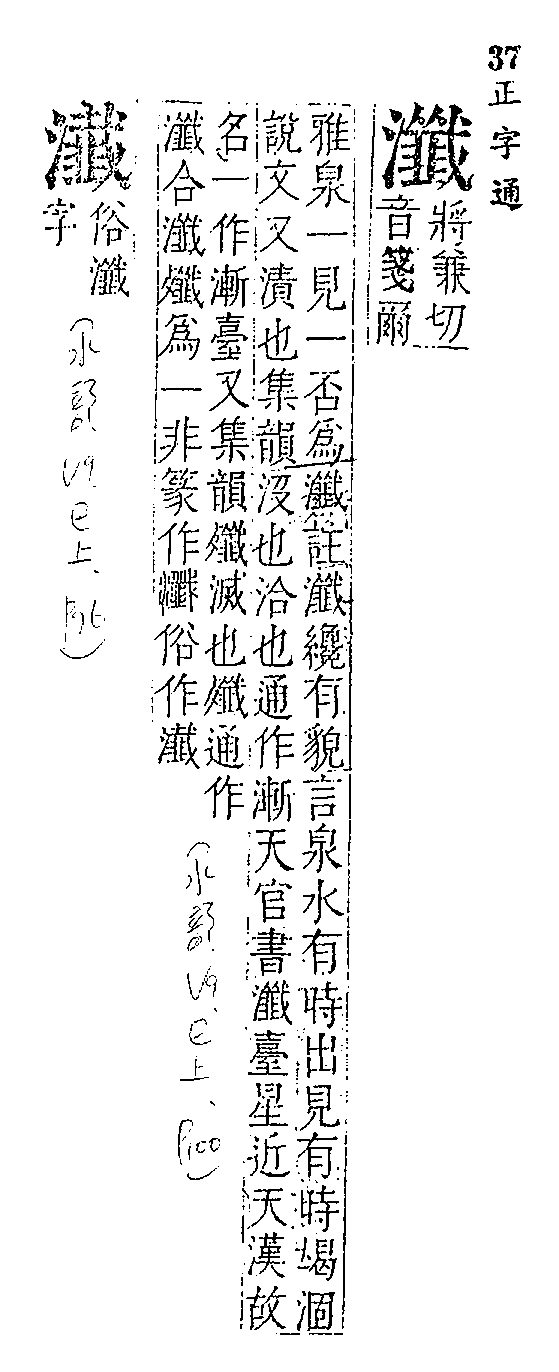 37 正字通
瀸
將兼切
音箋爾
雅泉一見一否為瀸註瀸纔有貌言泉水有時出見有時竭涸
說文又漬也集韻沒也洽也通作漸天官書瀸臺星近天漢故
名一作漸臺又集韻殲滅也殲通作
瀸合瀸殲爲一非篆作瀸俗作㶕
㶕
俗瀸
字